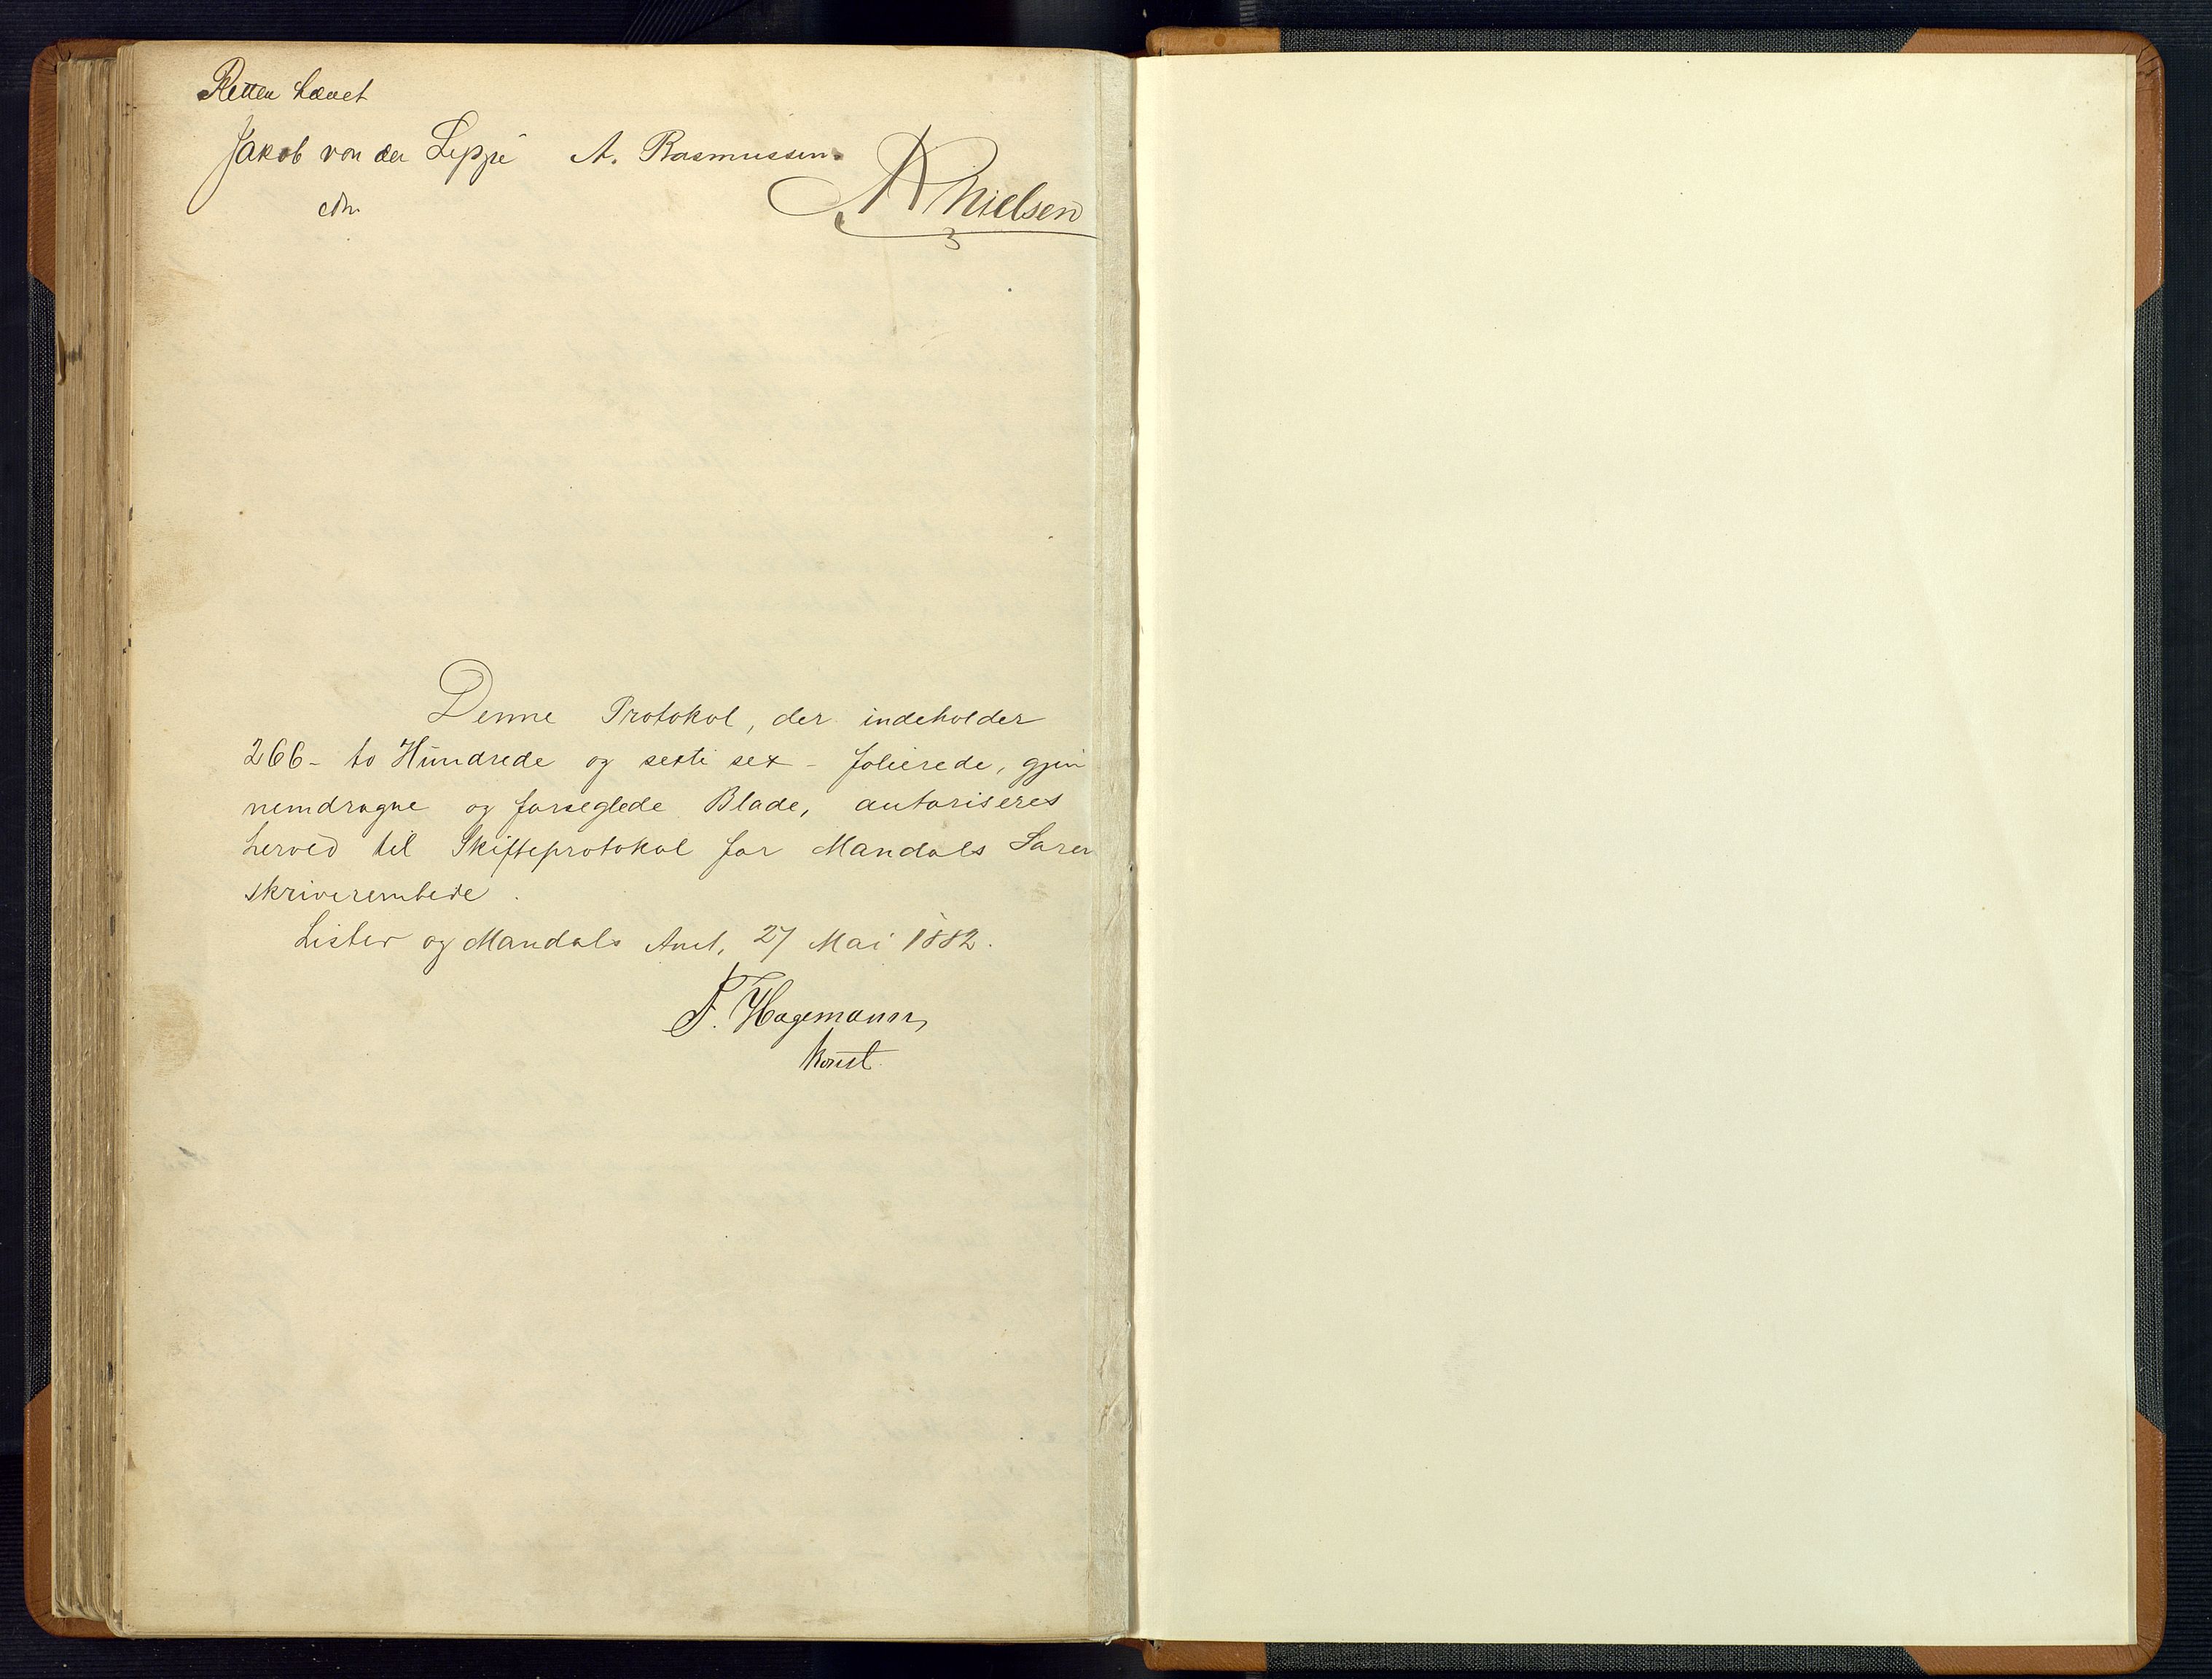 Retten hævet
Jakob von der Lippe A. Rasmussen
cst.
A Nielsen
Denne Protokol, der indeholder
266 - to Hundrede og sexti sex - folierede, gjen
nemdragne og forseglede Blade, autoriseres
herved til Skifteprotokol for Mandals Soren
skriverembede.
Lister og Mandals Amt, 27 Mai 1882.
F. Hagemann,
konst.